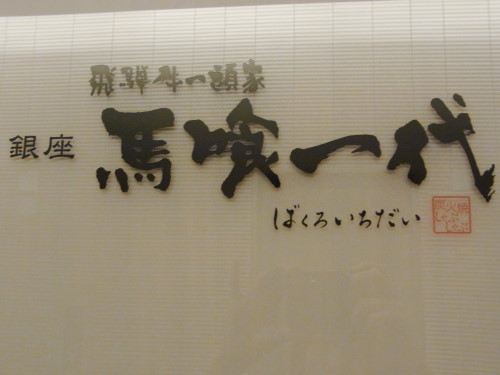 飛騨牛一頭家
銀座 馬喰一代
ばくろいちだい